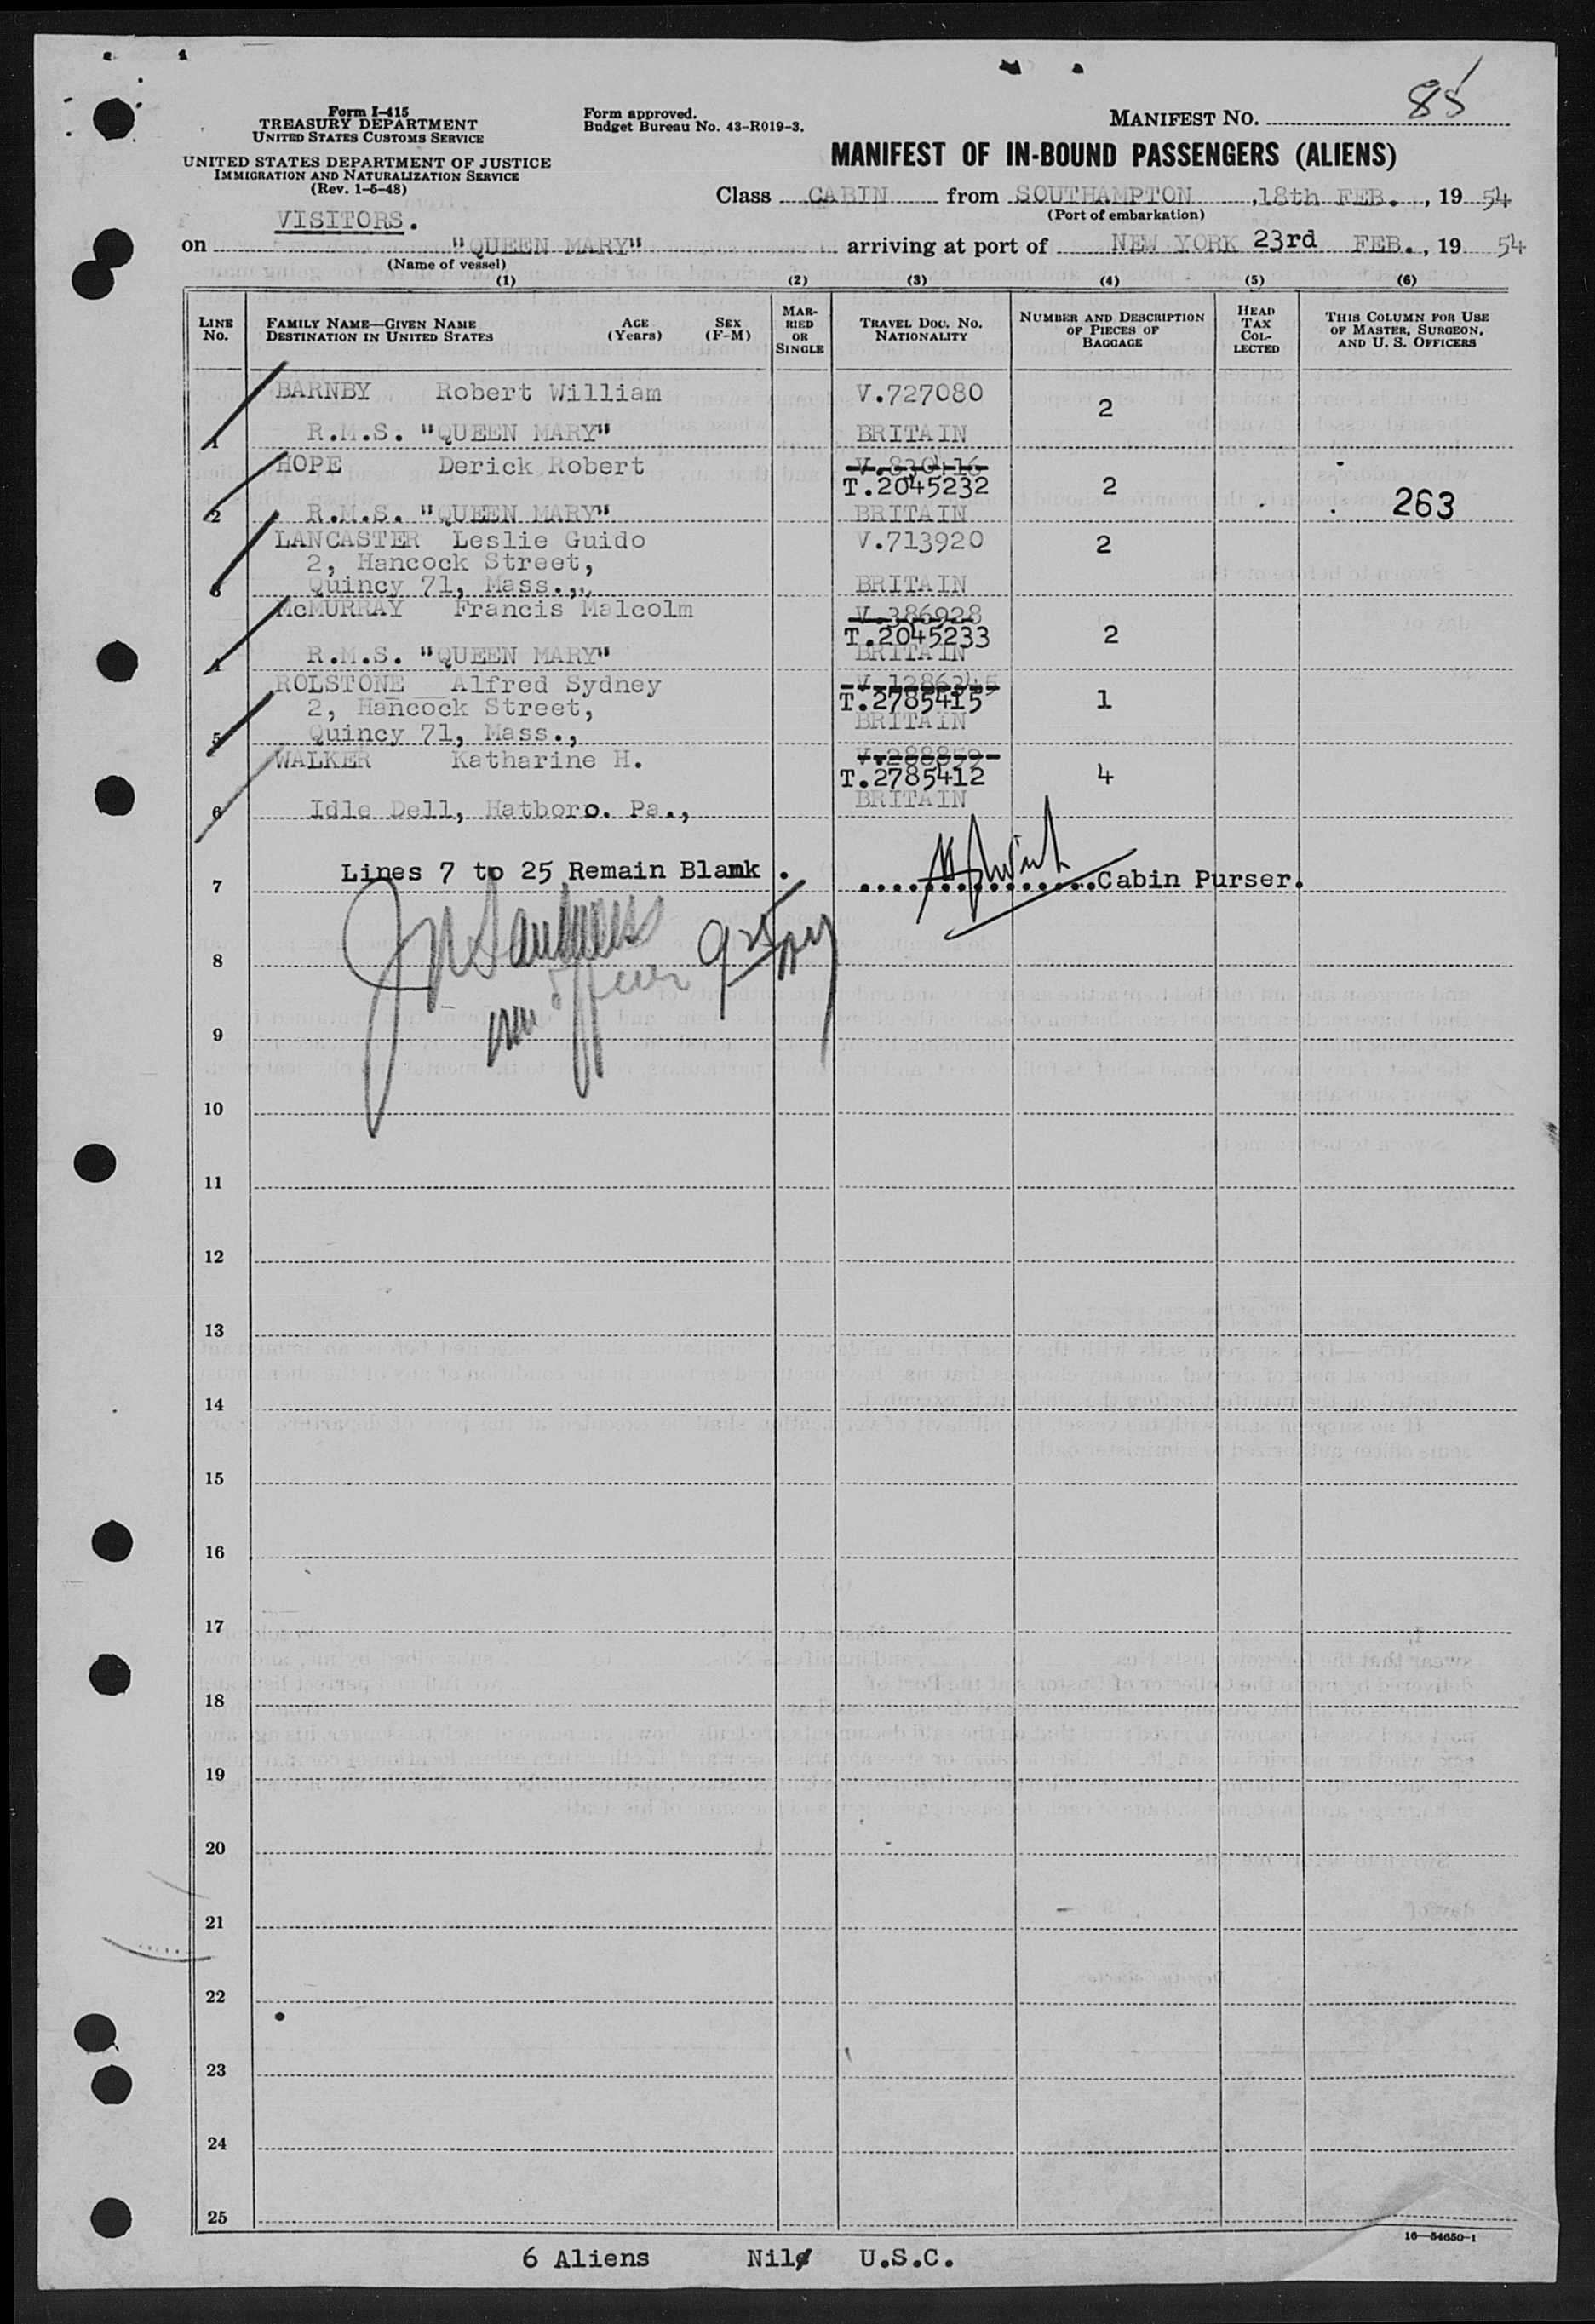 Form I-415
TREASURY DEPARTMENT
UNITED STATES CUSTOMS SERVICE
UNITED STATES DEPARTMENT OF JUSTICE
IMMIGRATION AND NATURALIZATION SERVICE
(Rev. 1-5-48)
Form approved.
Budget Bureau No. 43-R019-3.
MANIFEST NO. 85
MANIFEST OF IN-BOUND PASSENGERS (ALIENS)
Class CABIN from SOUTHAMPTON, 18th FEB., 1954
(Port of embarkation)
VISITORS.
on "QUEEN MARY" arriving at port of NEW YORK 23rd FEB., 1954
(Name of vessel)
(1) (2) (3) (4) (5) (6)
LINE NO.
FAMILY NAME—GIVEN NAME
DESTINATION IN UNITED STATES
AGE (Years)
SEX (F-M)
MARRIED OR SINGLE
TRAVEL DOC. NO.
NATIONALITY
NUMBER AND DESCRIPTION OF PIECES OF BAGGAGE
HEAD TAX COLLECTED
THIS COLUMN FOR USE OF MASTER, SURGEON, AND U. S. OFFICERS
BARNBY Robert William V.727080 2
1 R.M.S. "QUEEN MARY" BRITAIN
HOPE Derick Robert
T.2045232 2 263
2 R.M.S. "QUEEN MARY" BRITAIN
LANCASTER Leslie Guido V.713920 2
2, Hancock Street,
3 Quincy 71, Mass.,, BRITAIN
McMURRAY Francis Malcolm V.386928
T.2045233 2
4 R.M.S. "QUEEN MARY" BRITAIN
ROLSTONE Alfred Sydney
2, Hancock Street, T.2785415 1
5 Quincy 71, Mass., BRITAIN
WALKER Katharine H. V.288859
T.2785412 4
6 Idle Dell, Hatboro. Pa., BRITAIN
7 Lines 7 to 25 Remain Blank. Cabin Purser.
8
9
10
11
12
13
14
15
16
17
18
19
20
21
22
23
24
25
16—54650-1
6 Aliens Nil U.S.C.